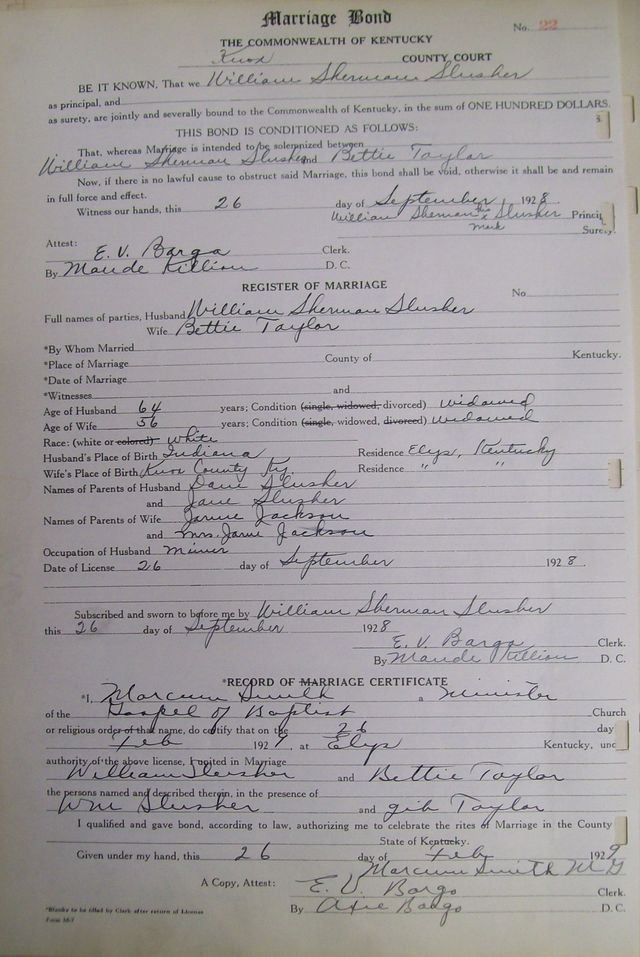 Marriage Bond
No. 22
THE COMMONWEALTH OF KENTUCKY
Knox COUNTY COURT
BE IT KNOWN, That we William Sherman Slusher
as principal, and
as surety, are jointly and severally bound to the Commonwealth of Kentucky, in the sum of ONE HUNDRED DOLLARS.
THIS BOND IS CONDITIONED AS FOLLOWS:
That, whereas Marriage is intended to be solemnized between
William Sherman Slusher and Bettie Taylor
Now, if there is no lawful cause to obstruct said Marriage, this bond shall be void, otherwise it shall be and remain
in full force and effect.
Witness our hands, this 26 day of September, 1928.
William Sherman his x Slusher Princi
mark Surety.
Attest:
E. V. Bargo Clerk.
By Maude Killion D. C.
REGISTER OF MARRIAGE
No
Full names of parties, Husband William Sherman Slusher
Wife Bettie Taylor
*By Whom Married
*Place of Marriage County of Kentucky.
*Date of Marriage
*Witnesses and
Age of Husband 64 years; Condition (single, widowed, divorced) Widowed
Age of Wife 56 years; Condition (single, widowed, divorced) Widowed
Race: (white or colored) White
Husband's Place of Birth Indiana Residence Elys, Kentucky
Wife's Place of Birth Knox County Ky. Residence " "
Names of Parents of Husband Dave Slusher
and Jane Slusher
Names of Parents of Wife Jackson
and Mrs. Jackson
Occupation of Husband Miner
Date of License 26 day of September 1928.
Subscribed and sworn to before me by William Sherman Slusher
this 26 day of September 1928
E. V. Bargo Clerk.
By Maude Killion D. C.
*RECORD OF MARRIAGE CERTIFICATE
*I, Marcum Smith a Minister
of the Gospel of Baptist Church
or religious order of that name, do certify that on the 26 day
Feb 1929, at Elys Kentucky, unc
authority of the above license, I united in Marriage
William Slusher and Bettie Taylor
the persons named and described therein, in the presence of
Wm Slusher and gib Taylor
I qualified and gave bond, according to law, authorizing me to celebrate the rites of Marriage in the County
State of Kentucky.
Given under my hand, this 26 day of Feb 1929
Marcum Smith M G
A Copy, Attest: E. V. Bargo Clerk.
By Bargo D. C.
*Blanks to be filled by Clerk after return of License